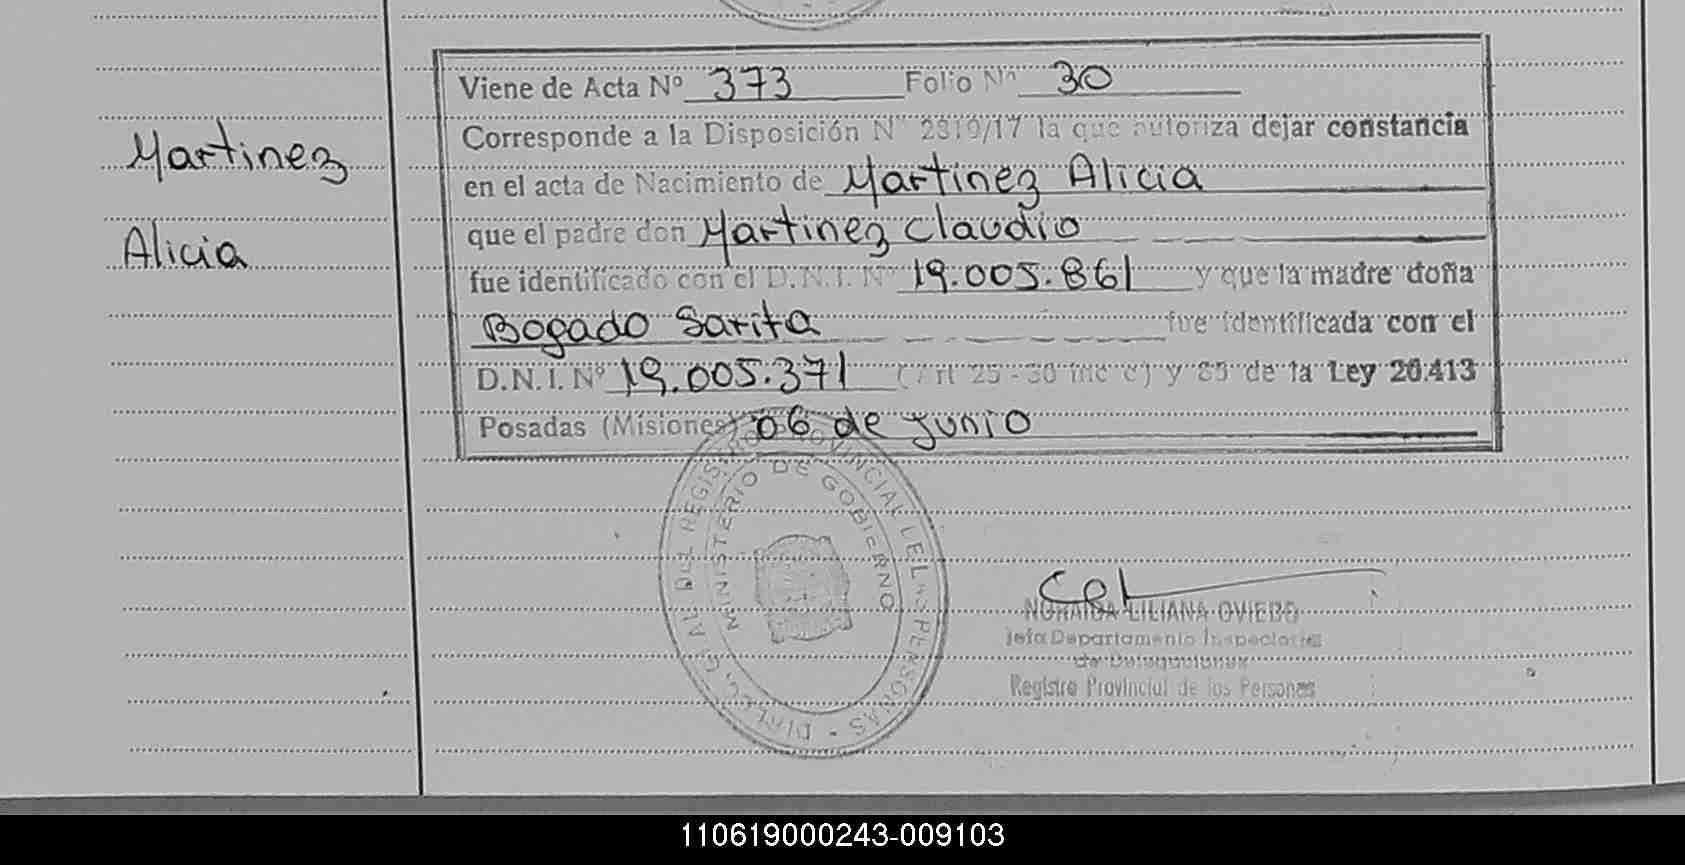 Viene de Acta Nº 373 Folio Nº 30
Corresponde a la Disposición Nº 2319/17 la que autoriza dejar constancia
Martinez
en el acta de Nacimiento de Martinez Alicia
que el padre don Martinez Claudio
Alicia
fue identificado con el D.N.I. Nº 19.005.861 y que la madre doña
Bogado Sarita fue identificada con el
D.N.I. Nº 19.005.371 (Art 25 - 30 inc c) y 85 de la Ley 26.413
Posadas (Misiones) 06 de junio
REGISTRO PROVINCIAL DE LAS PERSONAS
MINISTERIO DE GOBIERNO
NORAIDA LILIANA OVIEDO
Jefa Departamento Inspectoria
de Delegaciones
Registro Provincial de los Personas
110619000243-009103